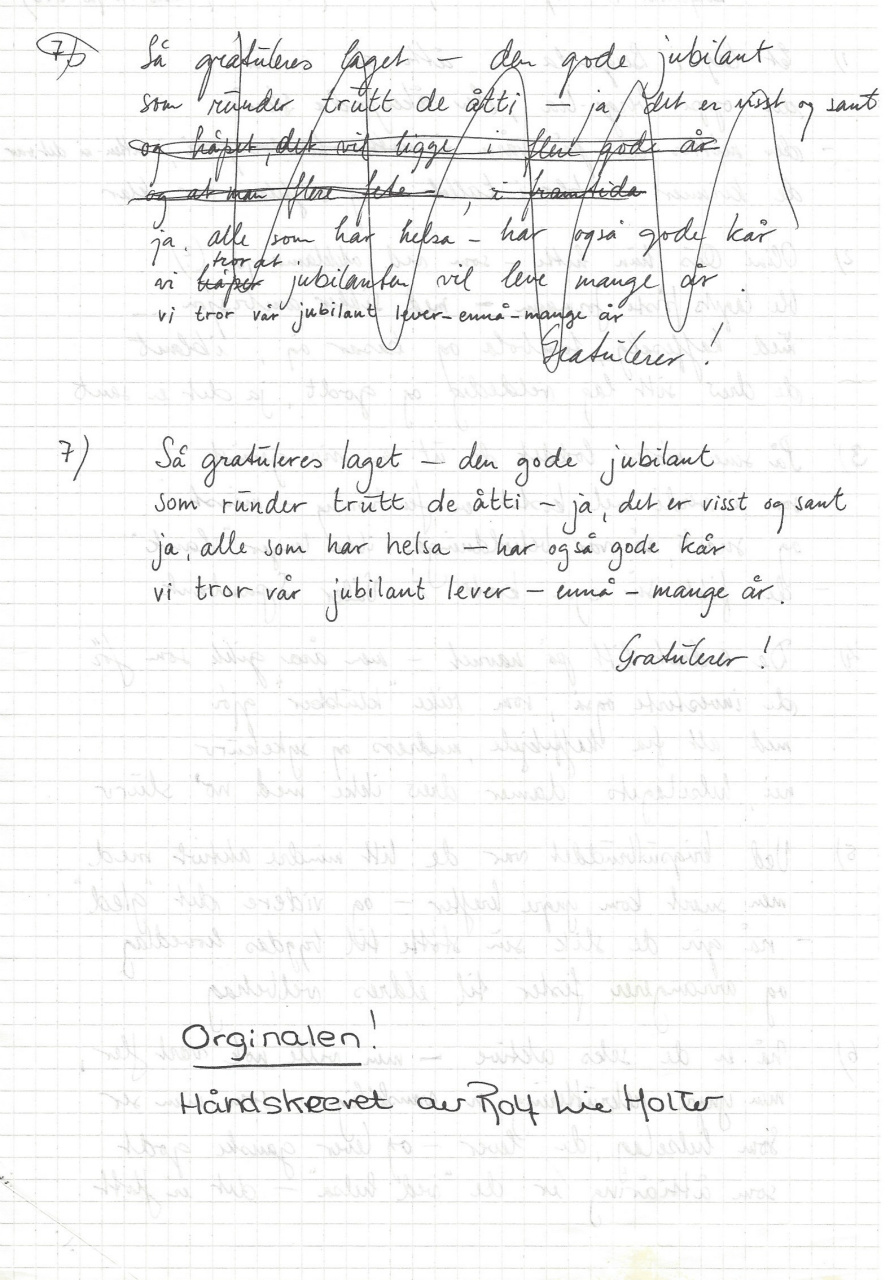 7)
Så gratuleres laget — den gode jubilant
som runder trutt de åtti — ja, det er visst og sant
og håpet, det vil ligge i flere gode år
og at man flere fete –, i framtida
ja, alle som har helsa – har også gode kår
tror at
vi håper jubilanten vil leve mange år.
vi tror vår jubilant lever – ennå – mange år
Gratulerer!
7) Så gratuleres laget — den gode jubilant
som runder trutt de åtti – ja, det er visst og sant
ja, alle som har helsa — har også gode kår
vi tror vår jubilant lever – ennå – mange år.
Gratulerer!
Orginalen!
Håndskrevet av Rolf Lie Holter